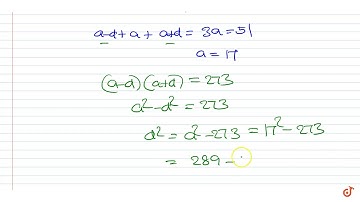 a-d + a + a+d = 3a = 51
a = 17
(a-d) (a+d) = 273
a² - d² = 273
d² = a² - 273 = 17² - 273
= 289 -